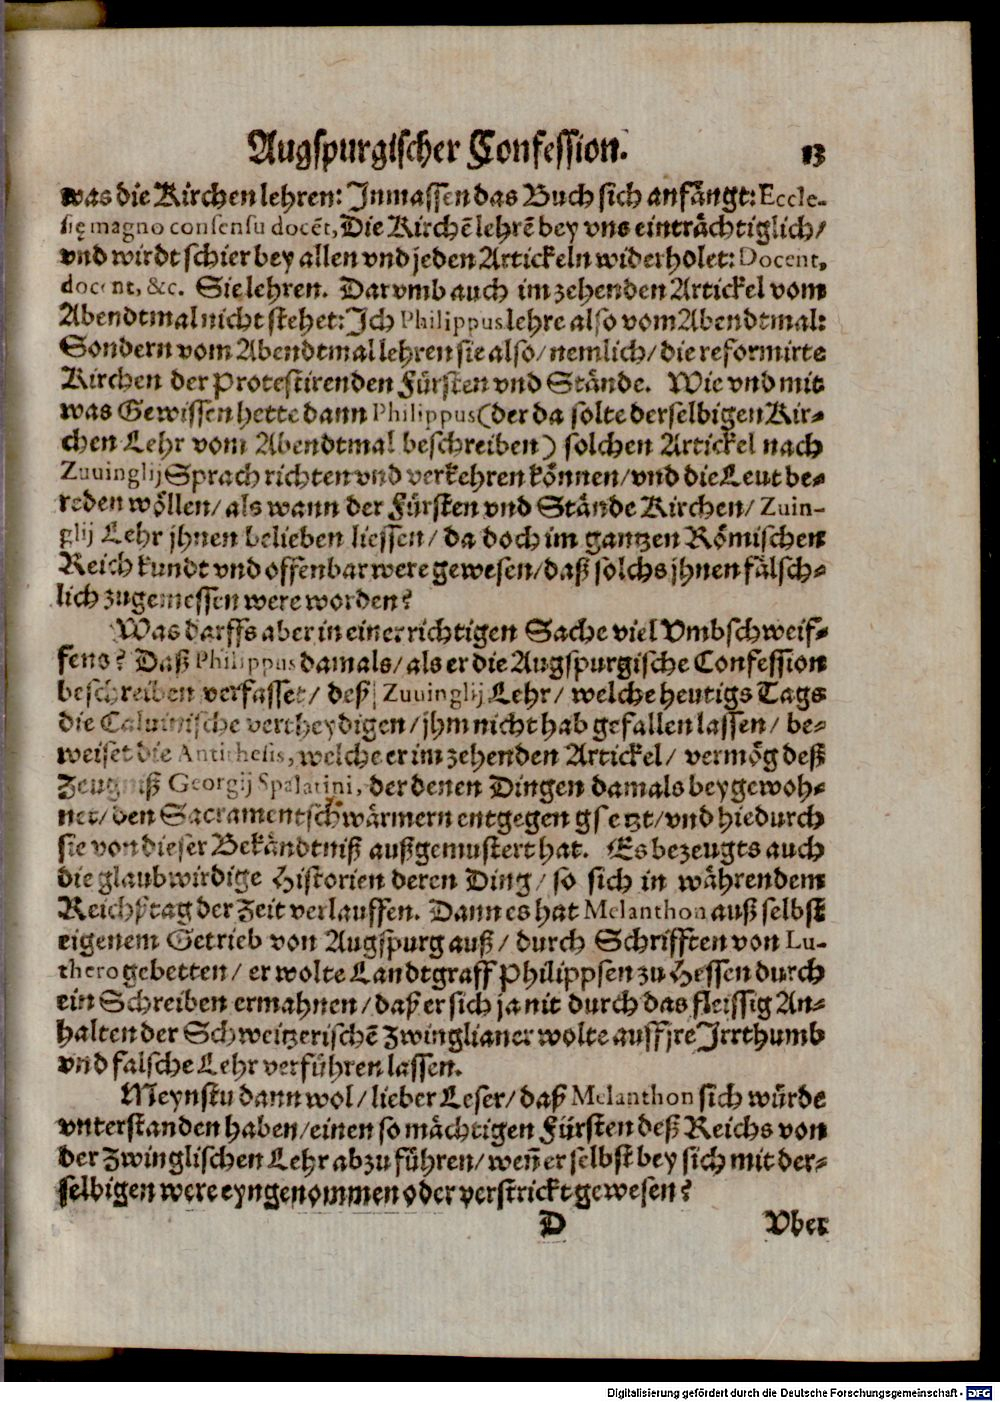 Augspurgischer Confession. 13
was die Kirchen lehren: Inmassen das Buch sich anfängt: Eccle-
się magno consensu docēt, Die Kirchē lehrē bey vns einträchtiglich/
vnd wirdt schier bey allen vnd jeden Artickeln widerholet: Docent,
docent, &c. Sie lehren. Darvmb auch im zehenden Artickel vom
Abendtmal nicht stehet: Ich Philippus lehre also vom Abendtmal:
Sondern vom Abendtmal lehren sie also/ nemlich/ die reformirte
Kirchen der Protestirenden Fürsten vnd Stände. Wie vnd mit
was Gewissen hette dann Philippus (der da solte derselbigen Kir-
chen Lehr vom Abendtmal beschreiben) solchen Artickel nach
Zuuinglij Sprach richten vnd verkehren können/ vnd die Leut be-
reden wöllen/ als wann der Fürsten vnd Stände Kirchen/ Zuin-
glij Lehr jhnen belieben liessen/ da doch im gantzen Römischen
Reich kundt vnd offenbar were gewesen/ daß solchs jhnen fälsch-
lich zugemessen were worden?
Was darffs aber in einer richtigen Sache viel Vmbschweif-
fens? Daß Philippus damals/ als er die Augspurgische Confession
beschreiben verfasset/ deß Zuuinglij Lehr/ welche heutigs Tags
die Caluinische vertheydigen/ jhm nicht hab gefallen lassen/ be-
weiset die Antithesis, welche er im zehenden Artickel/ vermög deß
Zeugniß Georgij Spalatini, der denen Dingen damals beygewoh-
net/ den Sacramentschwärmern entgegen gsetzt/ vnd hiedurch
sie von dieser Bekändtniß außgemustert hat. Es bezeugts auch
die glaubwirdige Historien deren Ding/ so sich in währendem
Reichßtag der Zeit verlauffen. Dann es hat Melanthon auß selbst
eigenem Getrieb von Augspurg auß/ durch Schrifften von Lu-
thero gebetten/ er wolte Landtgraff Philippsen zu Hessen durch
ein Schreiben ermahnen/ daß er sich ja nit durch das fleissig An-
halten der Schweitzerischē Zwinglianer wolte auff jre Irrthumb
vnd falsche Lehr verführen lassen.
Meynstu dann wol/ lieber Leser/ daß Melanthon sich würde
vnterstanden haben/ einen so mächtigen Fürsten deß Reichs von
der Zwinglischen Lehr abzuführen/ weñ er selbst bey sich mit der-
selbigen were eyngenommen oder verstrickt gewesen?
D Vber
Digitalisierung gefördert durch die Deutsche Forschungsgemeinschaft - DFG